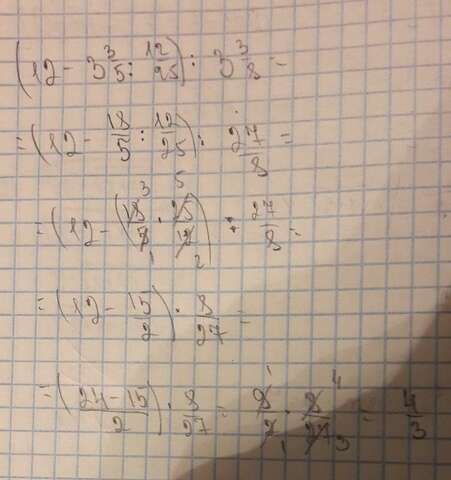 (12 - 3 3/5 : 12/25) : 3 3/8 =
= (12 - 18/5 : 12/25) : 27/8 =
= (12 - (18/5 · 25/12)) : 27/8 =
= (12 - 15/2) · 8/27 =
= (24 - 15 / 2) · 8/27 = 9/2 · 8/27 = 4/3